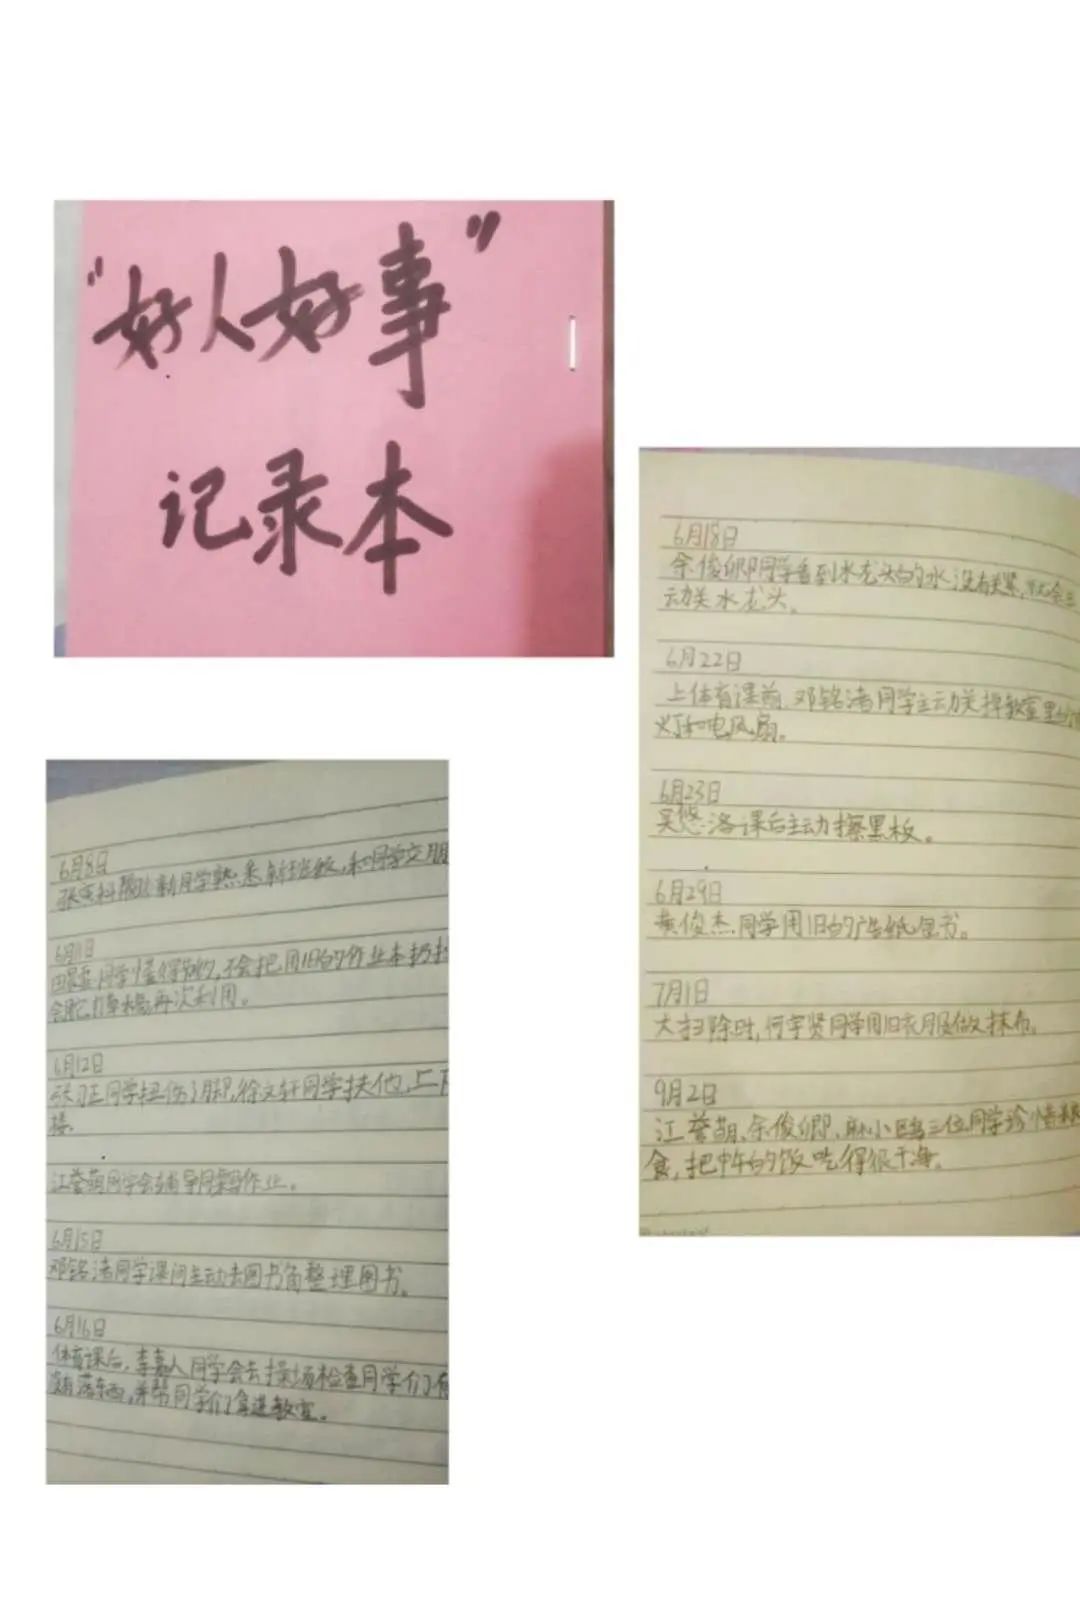 “好人好事”
记录本
6月8日
帮助新同学熟悉新班级,和同学交朋
6月1日
同学懂得节约,不会把用旧的作业本扔掉
会把它打草稿再次利用。
6月12日
同学扭伤了脚,徐文轩同学扶他上下
楼。
江誉萌同学会辅导同桌写作业。
6月15日
邓铭渚同学课间主动去图书角整理图书。
6月16日
体育课后,李嘉人同学会去操场检查同学们有
没有落东西,并帮同学们拿进教室。
6月18日
余俊卿同学看到水龙头的水没有关紧,就会主
动关水龙头。
6月22日
上体育课前,邓铭渚同学主动关掉教室里的
灯和电风扇。
6月23日
吴悠洛课后主动擦黑板。
6月29日
黄俊杰同学用旧的广告纸包书。
7月1日
大扫除时,何宇贤同学用旧衣服做抹布。
9月2日
江誉萌、余俊卿、小 三位同学珍惜粮
食,把中午的饭吃得很干净。